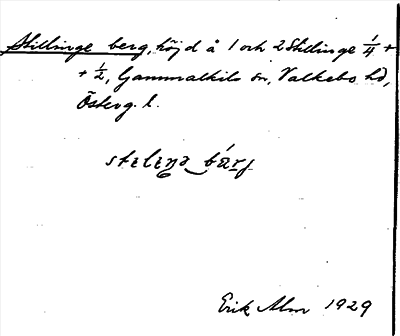 Skillinge berg, höjd å 1 och 2 Skillinge 1/4 +
+ 1/2, Gammalkils sn, Valkebo hd,
Österg. l.
Erik Alm 1929